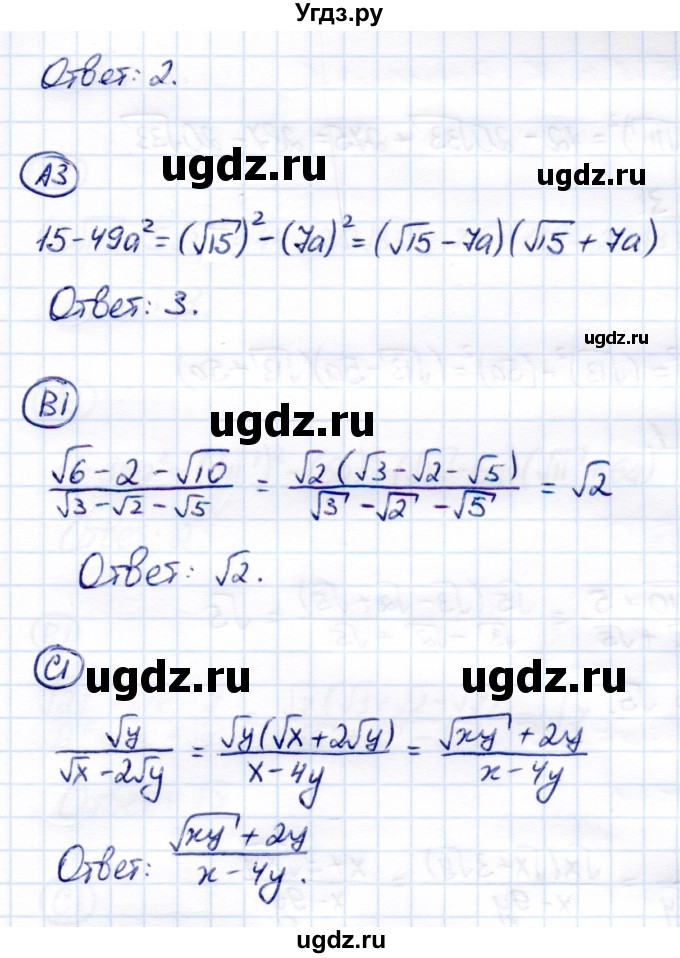 Угдз.ру
Ответ: 2.
ugdz.ru
A3
ugdz.ru
15-49a²=(√15)²-(7a)²=(√15-7a)(√15+7a)
Ответ: 3.
ugdz.ru
B1
ugdz.ru
(√6-2-√10)/(√3-√2-√5) = (√2(√3-√2-√5))/(√3-√2-√5) = √2
Ответ: √2.
C1
ugdz.ru ugdz.ru
√y/(√x-2√y) = (√y(√x+2√y))/(x-4y) = (√xy+2y)/(x-4y)
Ответ: (√xy+2y)/(x-4y).
ugdz.ru